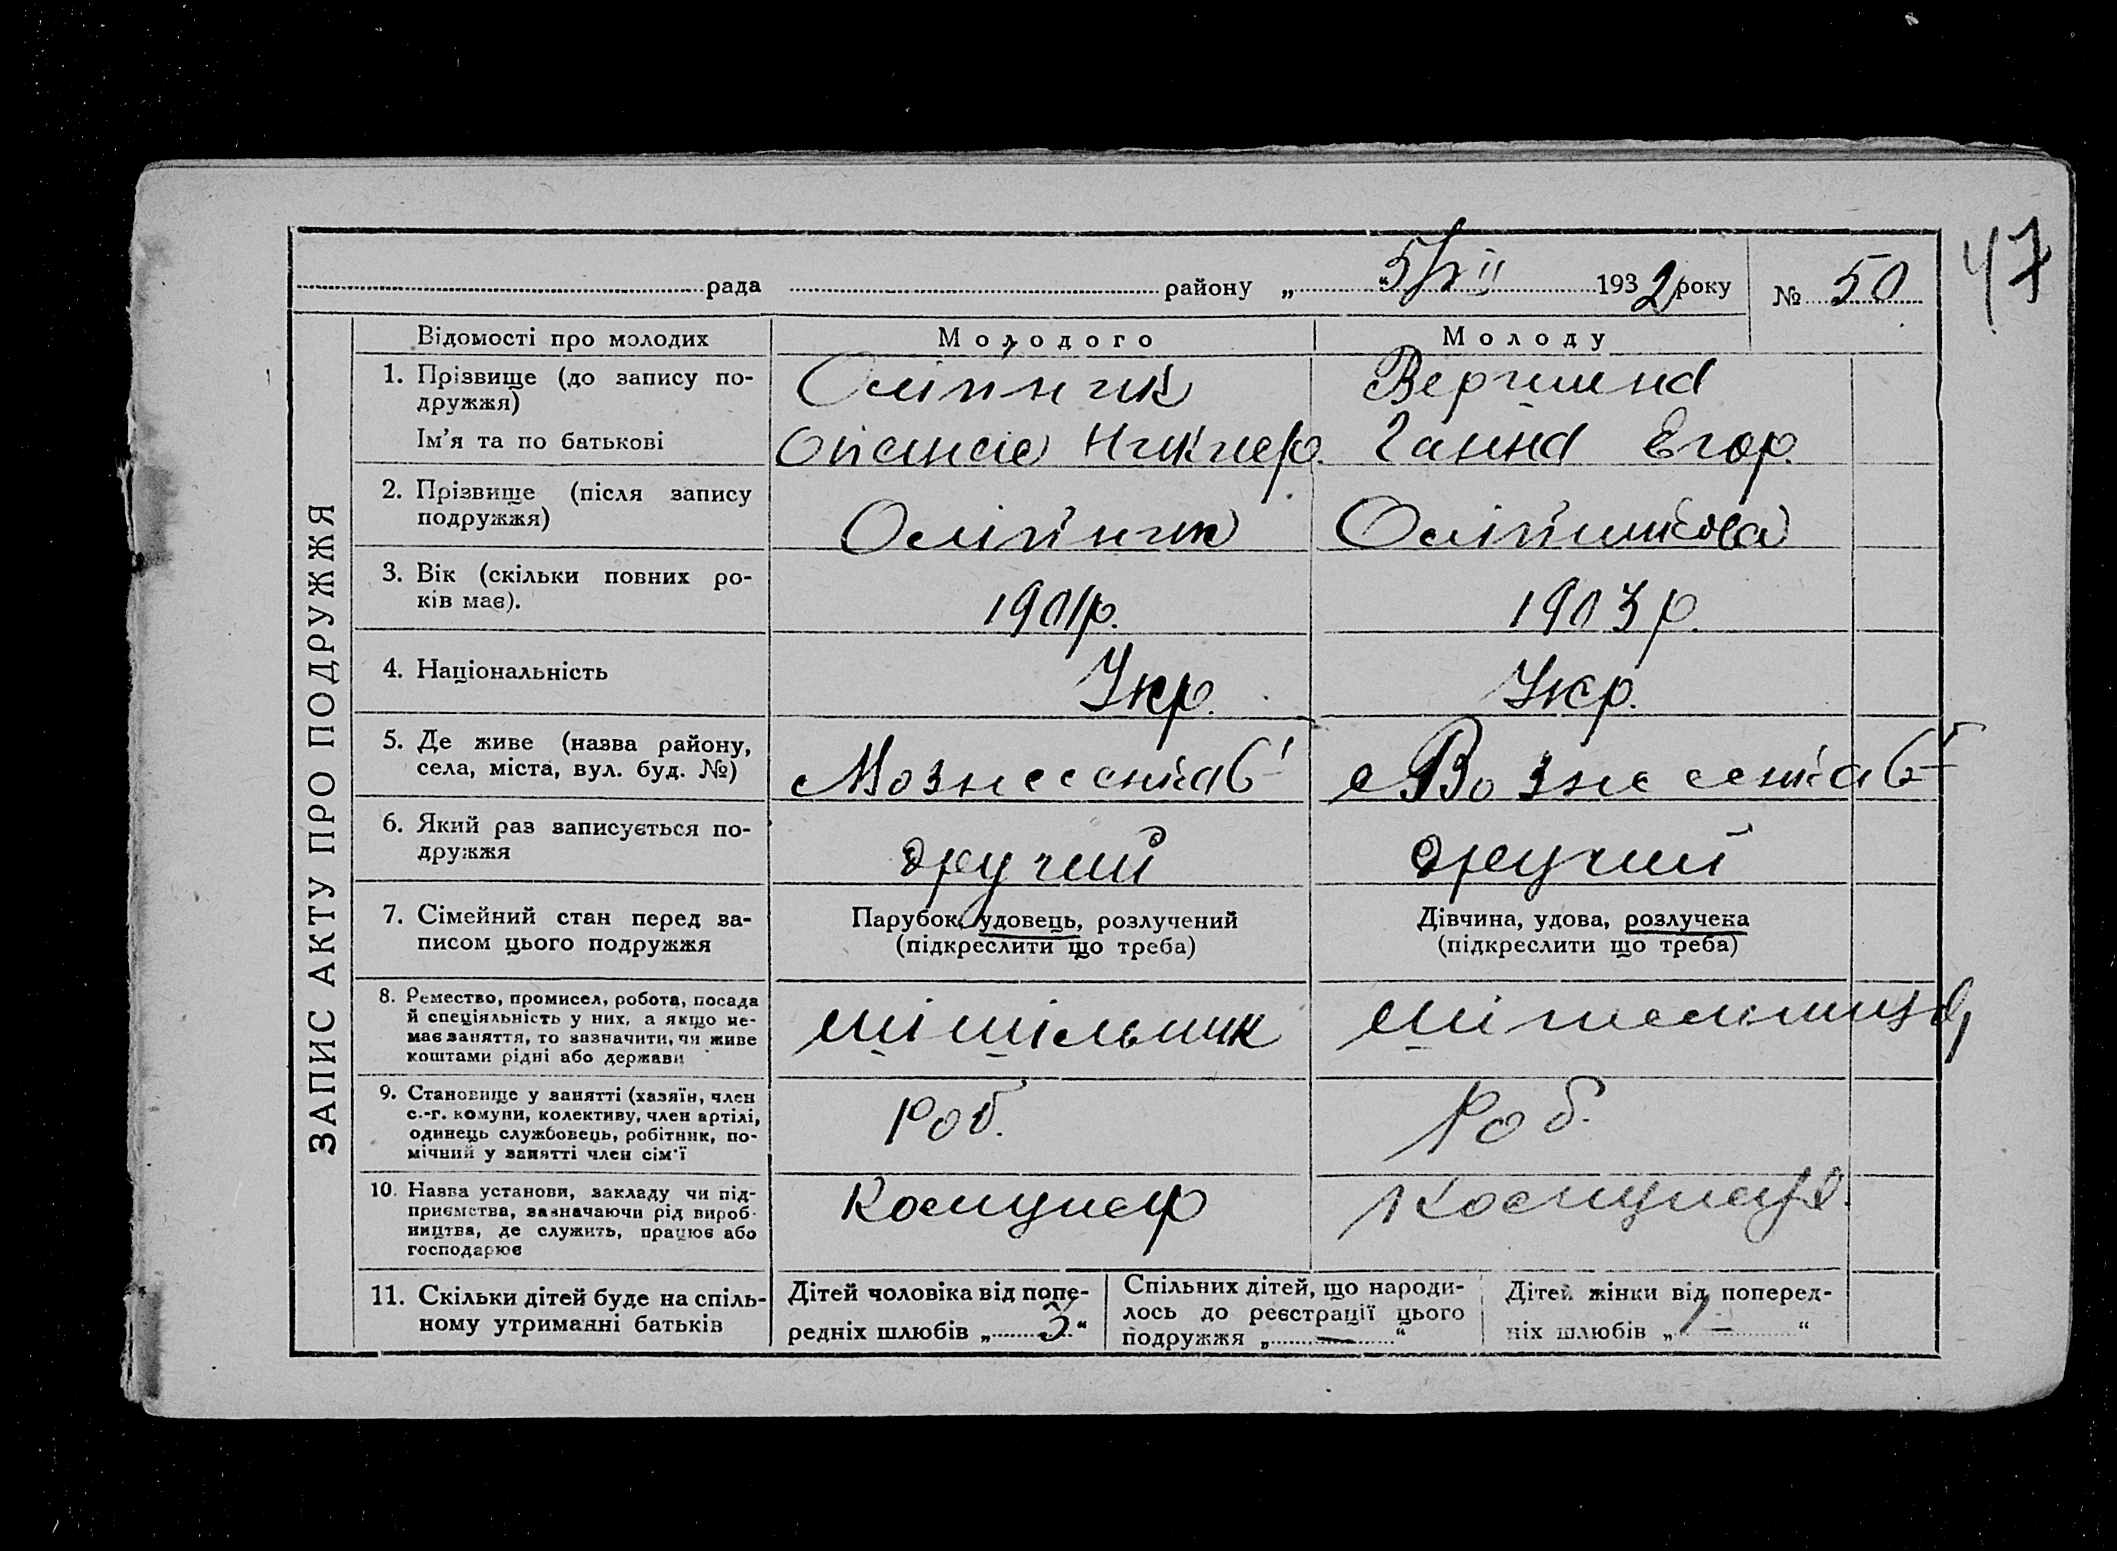 47
рада району „ 5/VII 1932 року № 50
ЗАПИС АКТУ ПРО ПОДРУЖЖЯ
Відомості про молодих Молодого Молоду
1. Прізвище (до запису по-
дружжя) Олійник
Ім’я та по батькові Опанас Никиер. Ганна Егор.
2. Прізвище (після запису
подружжя) Олійник Олійникова
3. Вік (скільки повних ро-
ків має). 1901р. 1903р.
4. Національність Укр. Укр.
5. Де живе (назва району,
села, міста, вул. буд. №) Вознесенка Вознесенка
6. Який раз записується по-
дружжя другий другий
7. Сімейний стан перед за-
писом цього подружжя
Парубок, удовець, розлучений
(підкреслити що треба)
Дівчина, удова, розлучена
(підкреслити що треба)
8. Ремество, промисел, робота, посада
й спеціяльність у них, а якщо не-
має заняття, то зазначити, чи живе
коштами рідні або держави
9. Становище у занятті (хазяїн, член
с.-г. комуни, колективу, член артілі,
одинець службовець, робітник, по-
мічний у занятті член сім’ї
Роб. Роб.
10. Назва установи, закладу чи під-
приємства, зазначаючи рід вироб-
ництва, де служить, працює або
господарює
11. Скільки дітей буде на спіль-
ному утриманні батьків
Дітей чоловіка від попе-
редніх шлюбів „ 3 “
Спільних дітей, що народи-
лось до реєстрації цього
подружжя „ — “
Дітей жінки від поперед-
ніх шлюбів „ 1 “